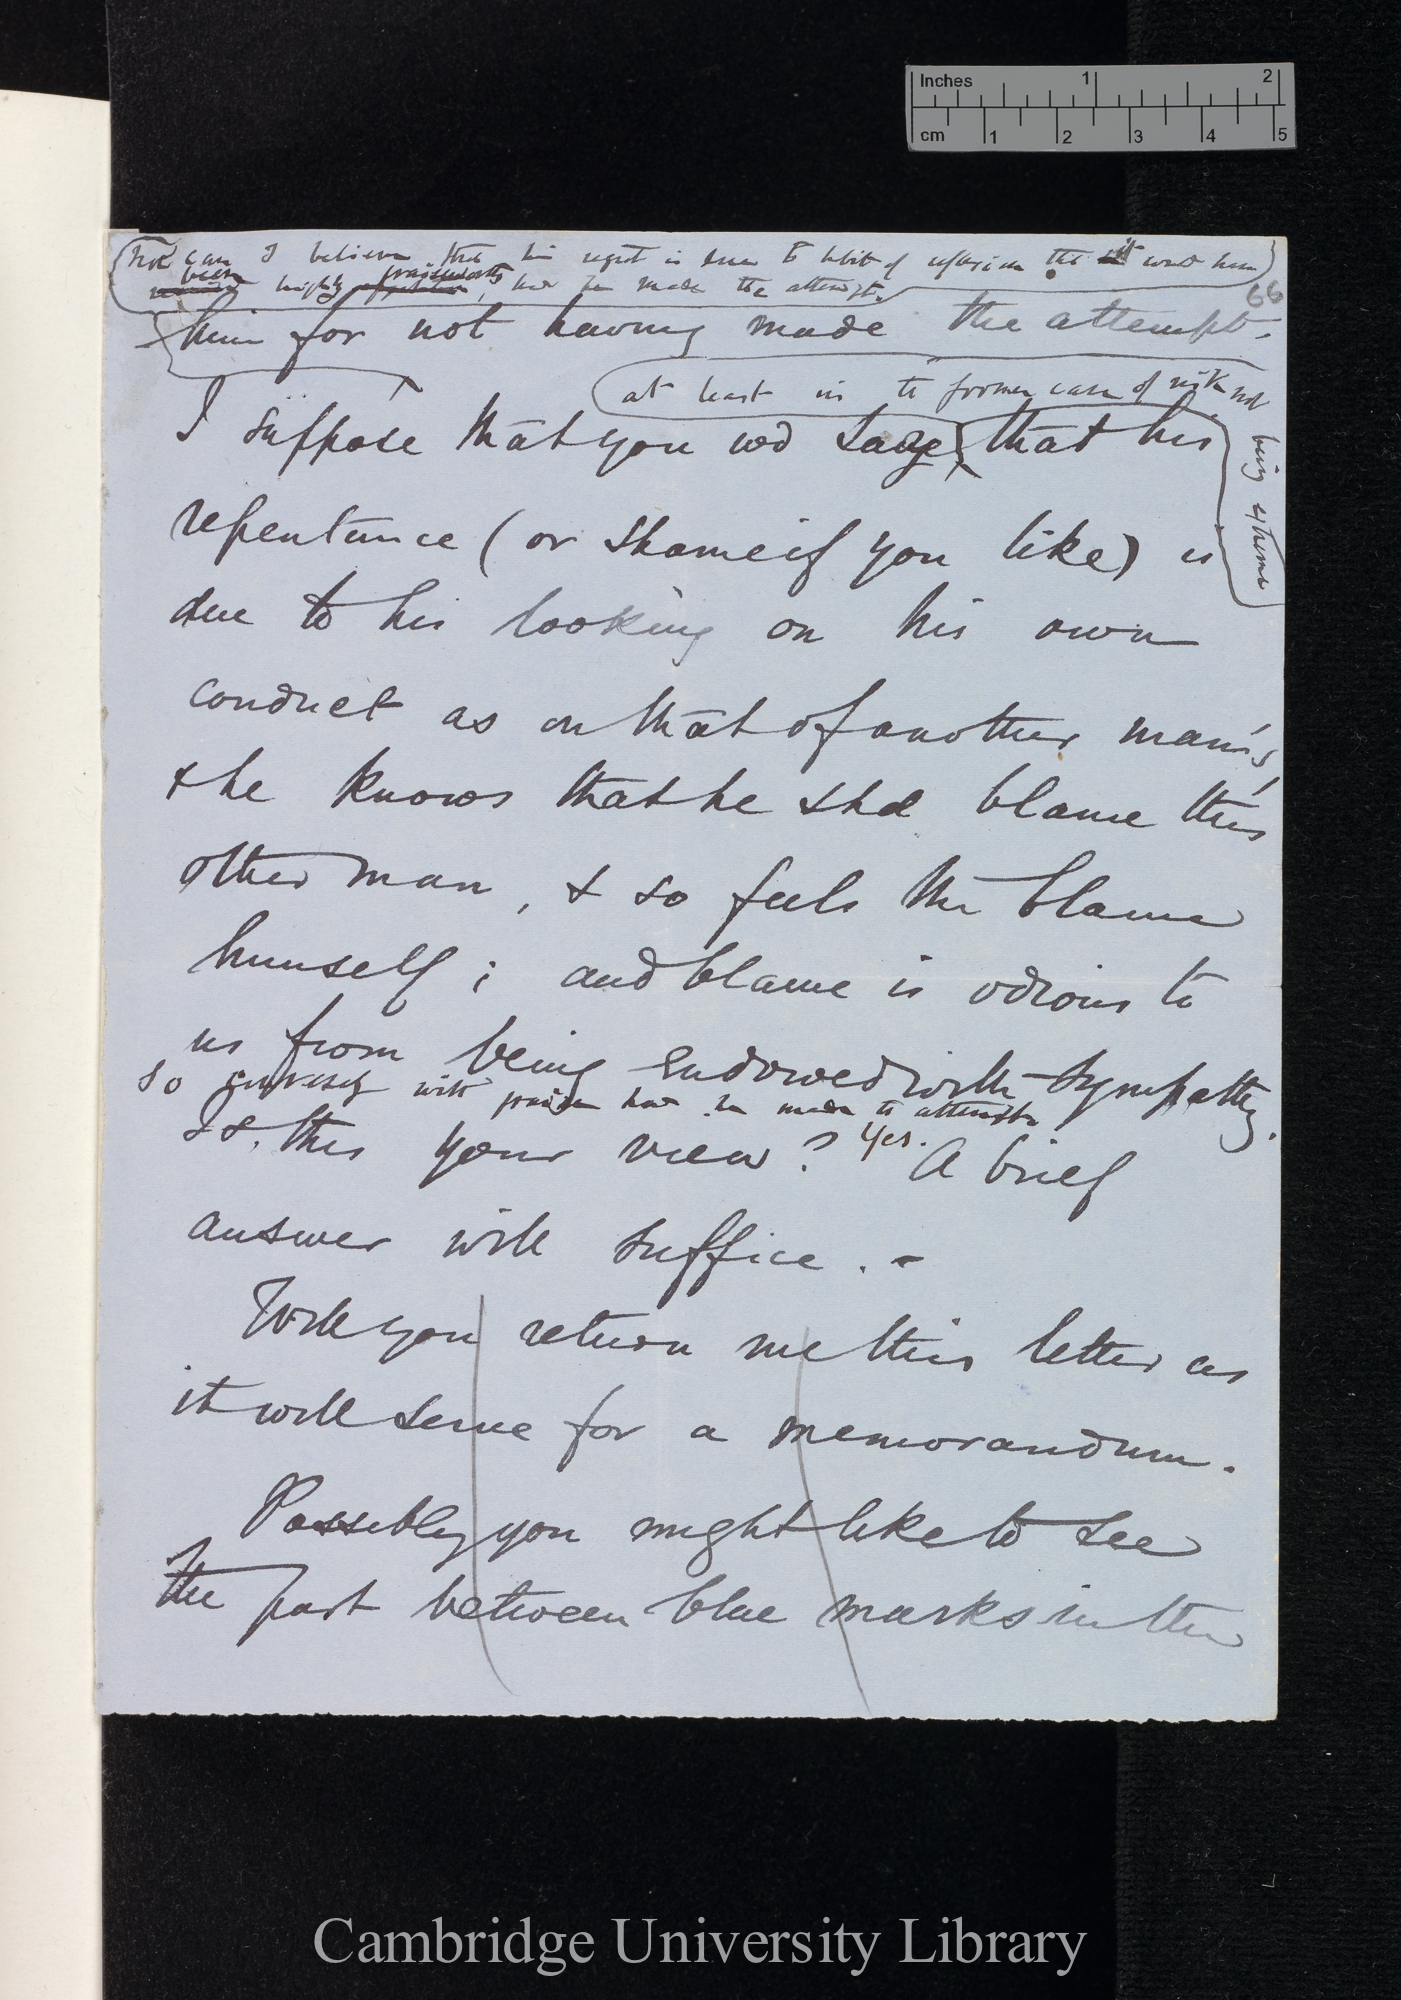 Inches 1 2
cm 1 2 3 4 5
Nor can I believe that his regret is due to habit of reflexion that it would have
been highly praiseworthy, had he made the attempt.
66
him for not having made the attempt.
at least in the former case of risk not
being extreme
I suppose that you wd say that his
repentance (or shame if you like) is
due to his looking on his own
conduct as on that of another man's,
& he knows that he shd blame this
other man, & so feels the blame
himself; and blame is odious to
us from being endowed with sympathy.
So conversely with praise had he made the attempt
Is this your view? Yes. A brief
answer will suffice. –
Will you return me this letter as
it will serve for a memorandum.
Possibly you might like to see
the part between blue marks in the
Cambridge University Library